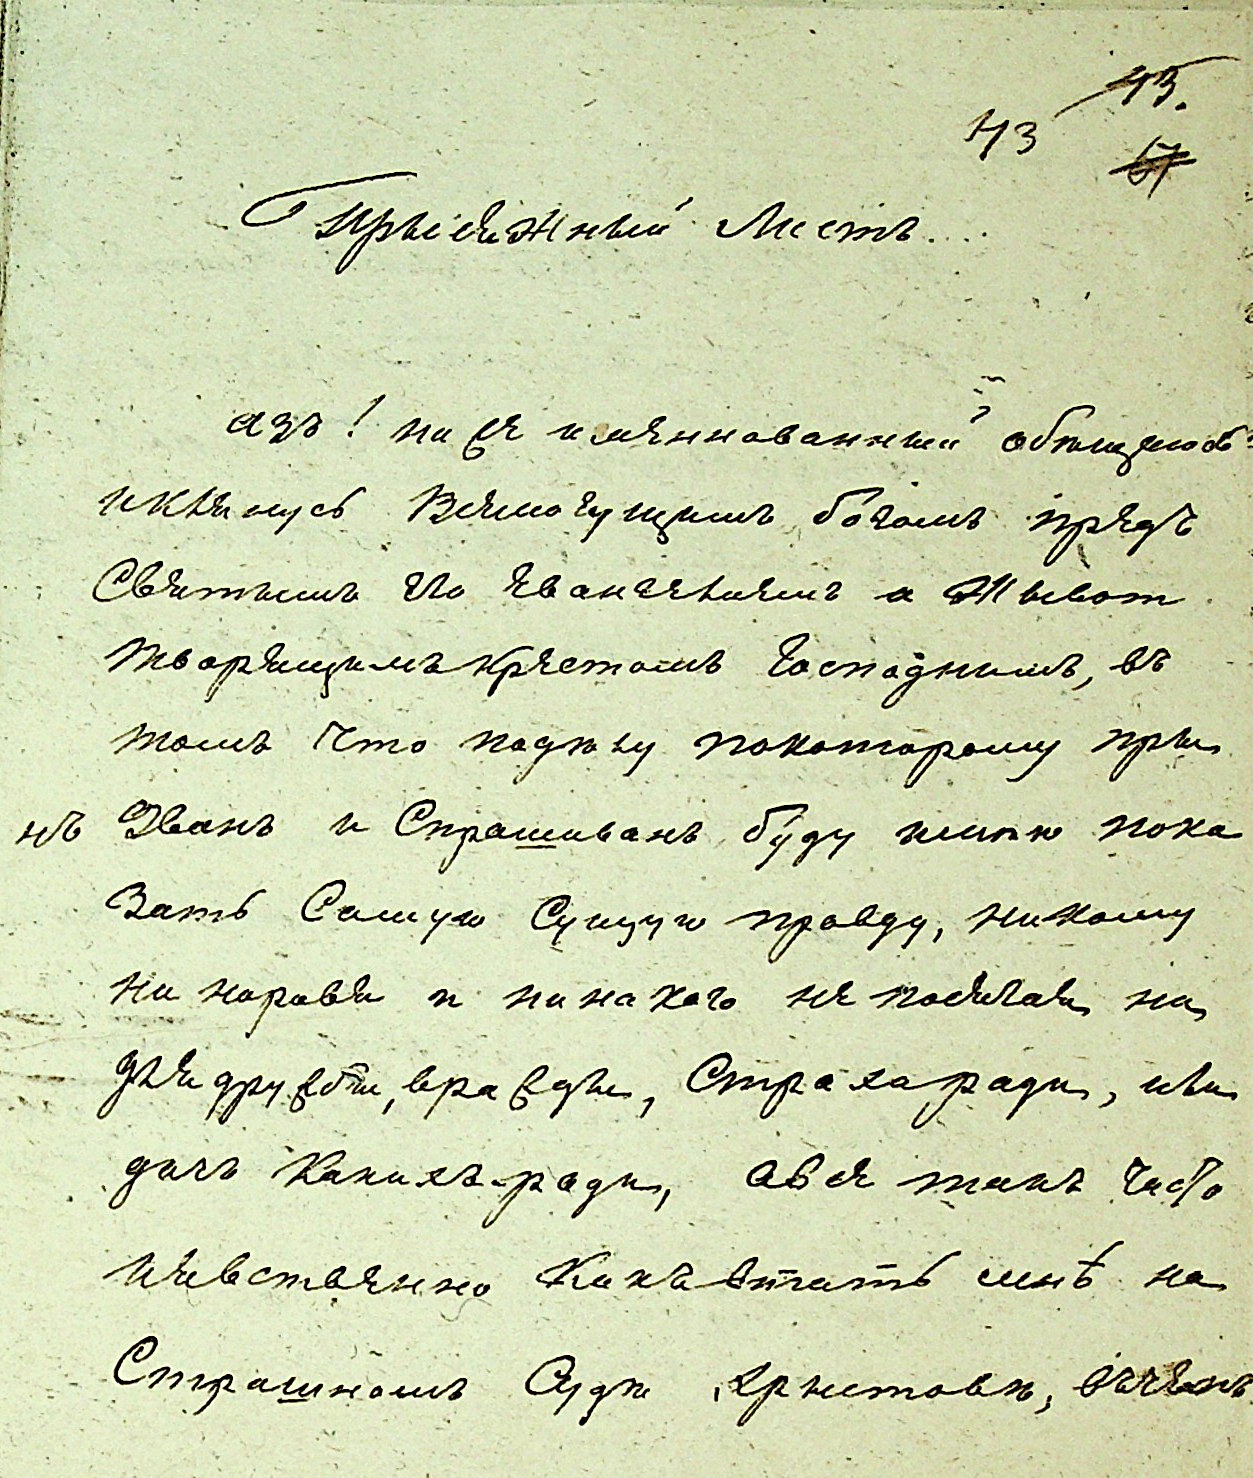 43.
43
67
Присяжный Листъ.
Азъ! ниже имянованный обѣщаюсь
и клянусь Всемогущимъ богомъ предъ
Святымъ его евангелиемъ и Живот
творящимъ крестомъ господнимъ, въ
томъ что подѣлу покоторому при
нъ Званъ и Спрашиванъ буду имѣю пока
Зать Самую Сущую правду, никому
ни норовя и нинакого не посягая ни
для дружбы, вражды, Страха ради, или
дачь Какихъ-ради, но такъ чисто
Какъ мнѣ на
Страшномъ Судѣ христовѣ,